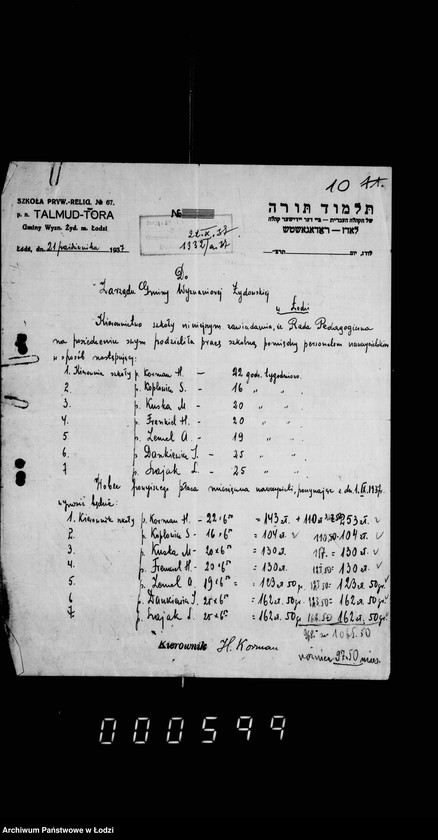 10
SZKOŁA PRYW.-RELIG. № 67.
p. n. TALMUD-TORA
Gminy Wyzn. Żyd. m. Łodzi
Łódź, dn. 21 października 1937
№
22.X.37
1332/a.37
תלמוד תורה
לאדז —
לודז, יום
Do
Zarządu Gminy Wyznaniowej Żydowskiej
w Łodzi
Kierownictwo szkoły niniejszym zawiadamia, że Rada Pedagogiczna
na posiedzeniu swym podzieliła pracę szkolną pomiędzy personelem nauczycielskim
w sposób następujący:
1. Kierownik szkoły p. Korman H. — 22 godz. tygodniowo.
2. p. Kopłowicz S. - 16 " "
3. p. Kuska M - 20 " "
4. p. Frenkiel H. - 20 " "
5 p. Lemel A. - 19 " "
6. p. Dankiewicz I. - 25 " "
7 p. Szajak L. - 25 " "
Wobec powyższego płaca miesięczna nauczycieli, począwszy z dn. 1.IX.1937r.
wynosić będzie:
1. Kierownik szkoły p. Korman H. - 22 x 6⁵⁰ = 143 zł. + 110 zł. 253 zł.
2. p. Kopłowicz S - 16 x 6⁵⁰ = 104 zł. 104 zł.
3. p. Kuska M - 20 x 6⁵⁰ = 130 zł. = 130 zł.
4. p. Frenkiel H. - 20 x 6⁵⁰ = 130 zł. = 130 zł.
5. p. Lemel A. 19 x 6⁵⁰ = 123 zł. 50 gr. = 123 zł. 50 gr.
6 p. Dankiewicz I. 25 x 6⁵⁰ = 162 zł. 50 gr. = 162 zł. 50 gr.
7. p. Szajak L. 25 x 6⁵⁰ = 162 zł. 50 gr. 162 zł. 50 gr.
1065.50
Kierownik H. Korman
różnica 97.50 mies.
000599
Archiwum Państwowe w Łodzi